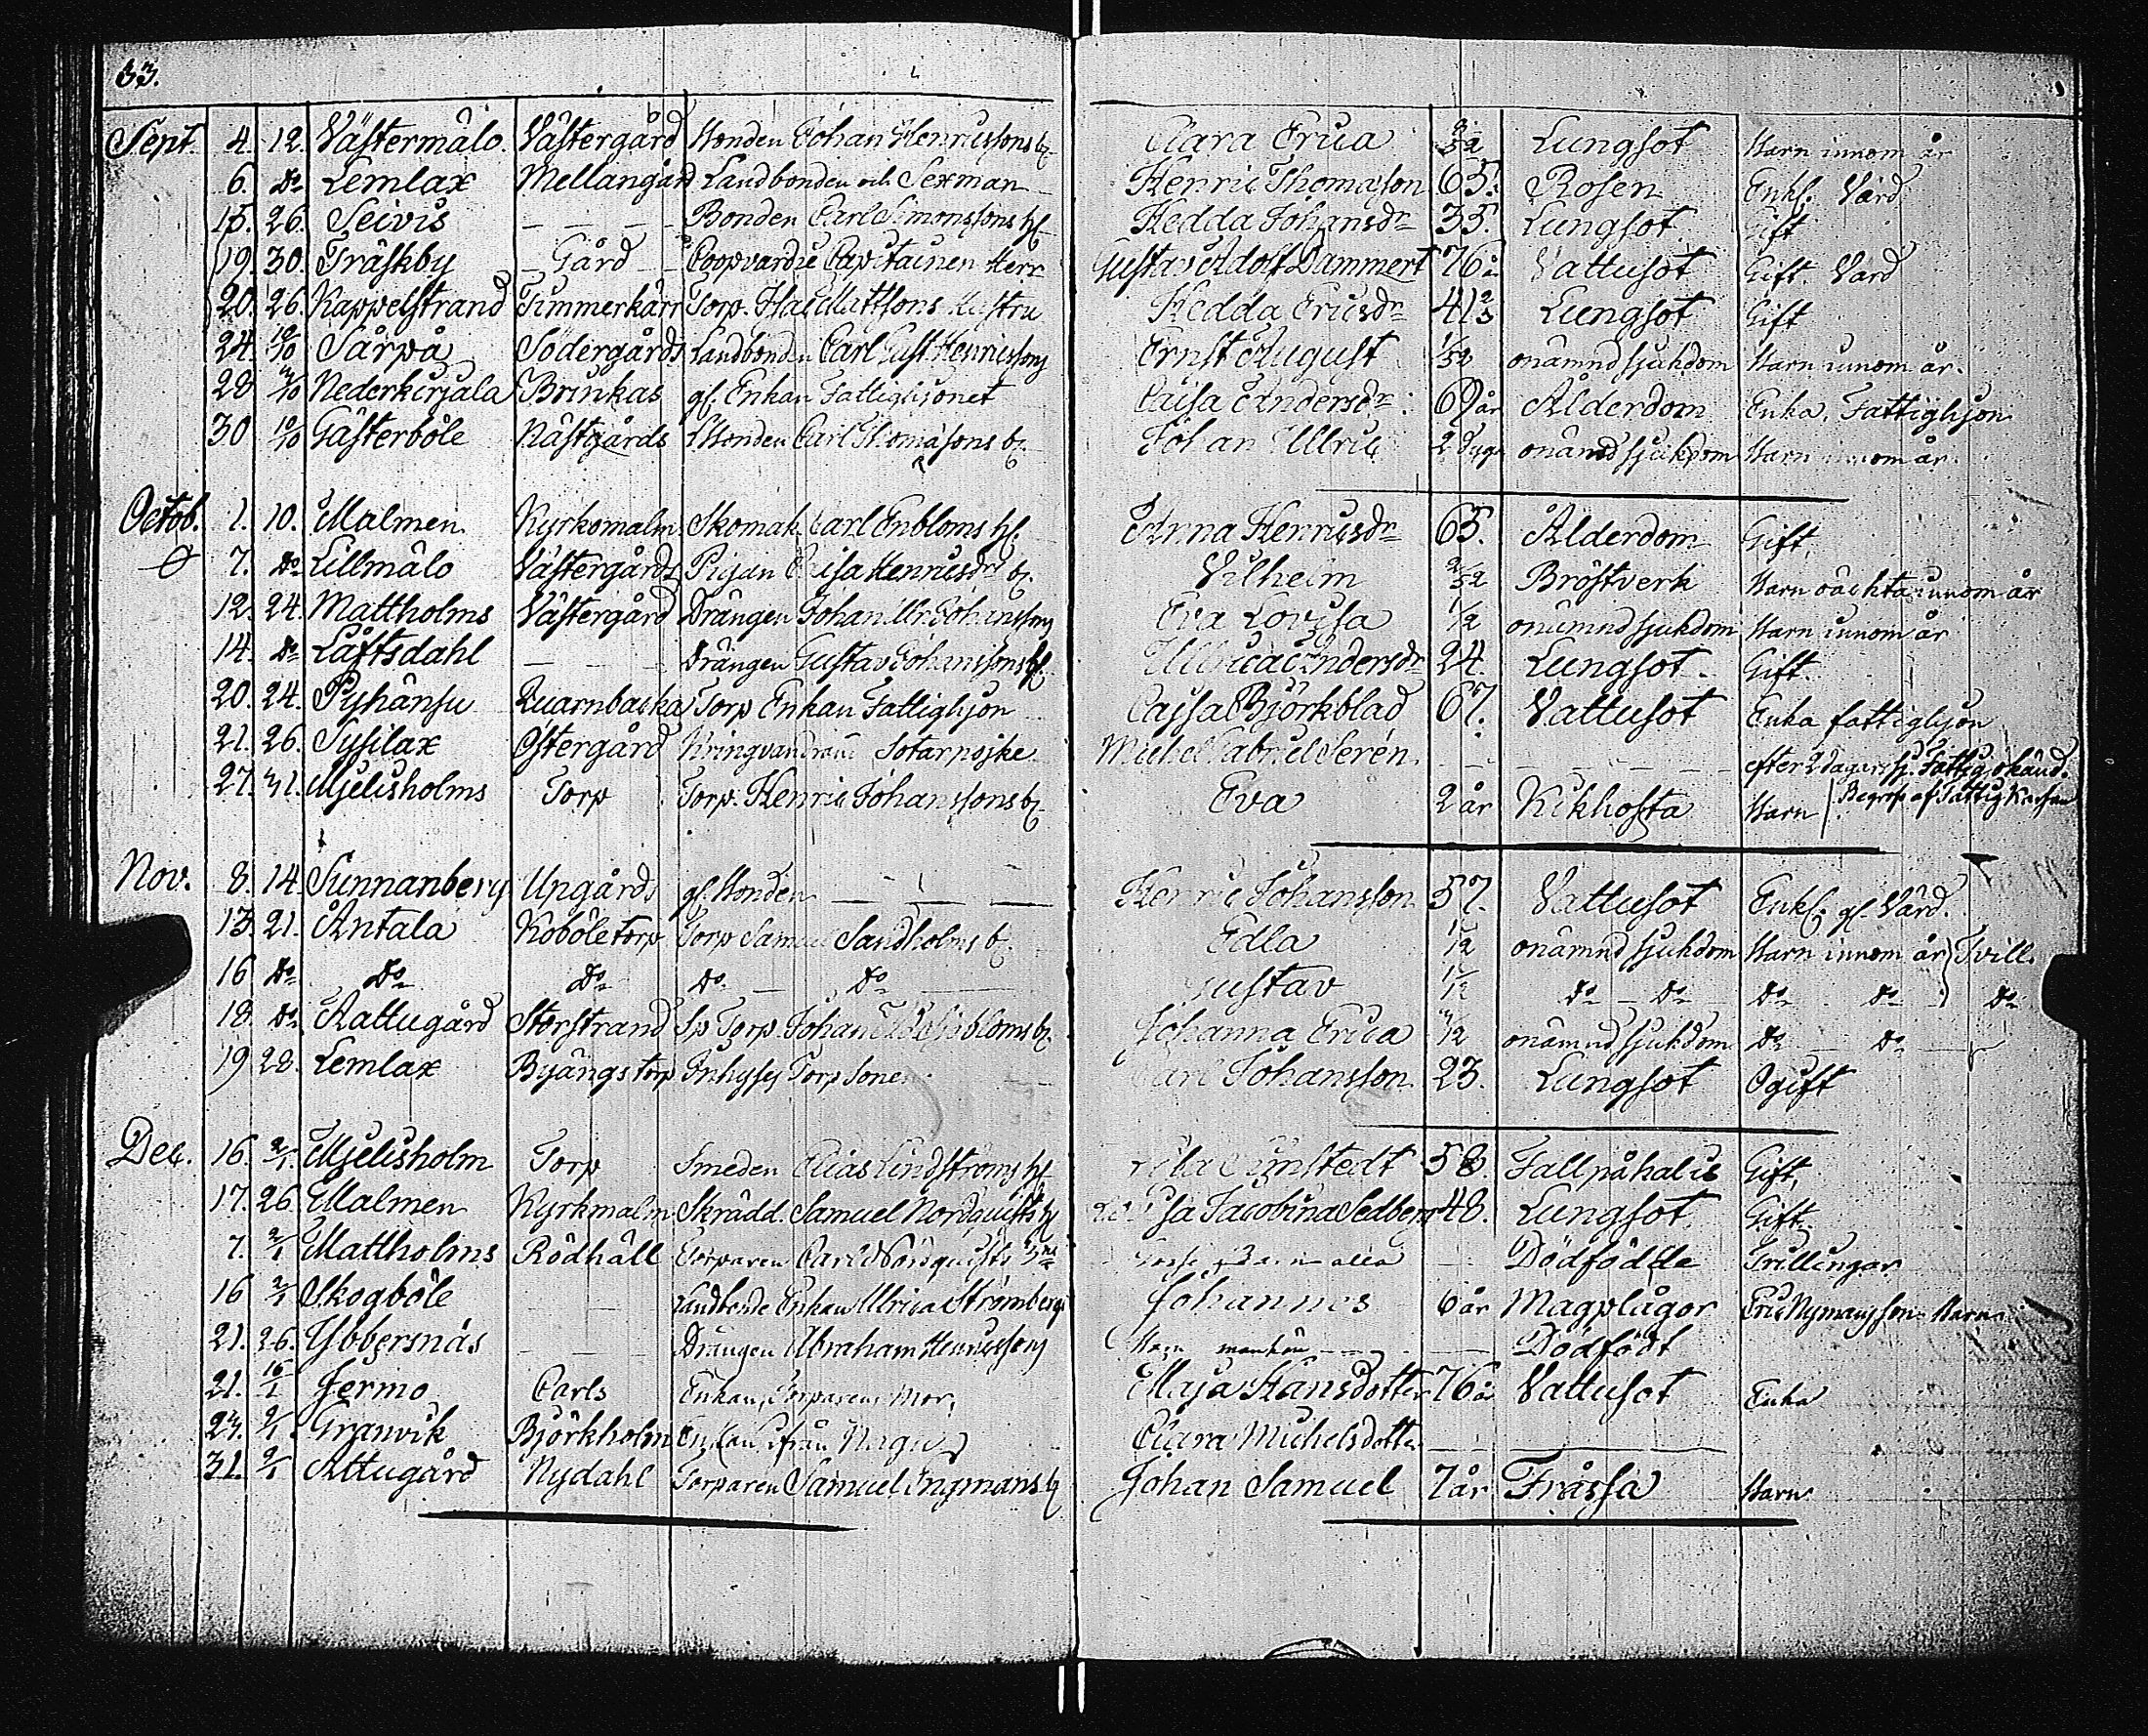 33.
Sept. 4. 12. Västermälo. Västergård Bonden Johan Henricssons b. Clara Erica Lungsot Barn innom år
6. do Lemlax Mellangård Landbonden och Sexman Henric Thomasson 65. Rosen Enkl. Värd
15. 26. Seivis Bonden Carl Simonssons hf Hedda Johansdr 35. Lungsot Gift
19. 30. Träskby Gård Coopvardie Capitainen Herr Gustav Adolf Dammert 76 å Vattusot Gift. Värd
20. 26. Kappelstrand Timmerkärr Torp. Isac Mattsons Hustru Hedda Ericsdr 41 Lungsot Gift
24. 10/10 Särpä Södergårds Landbonden Carl Gust Henricssons Ernst August 1/52 onämnd sjukdom Barn innom år.
28 Nederkirjala Brinkas gl. Enkan Fattighjonet Caisa Andersdr 69 år Ålderdom Enka, Fattighjon
30 10/10 Gästerböle Nästgårds Bonden Carl Thomassons b. Johan Ullric 2 dygn onämnd sjukdom Barn innom år.
Octob. 1. 10. Malmen Kyrkomalm Skomak. Carl Enbloms hf. Anna Henricsdr 65. Ålderdom Gift
7. do Lillmälo Västergårds Pigan Caisa Henricsdrs b. Vilhelm 2/52 Bröstverk Barn oächta innom år
12. 24. Mattholms Västergård Drängen Johan Ulr. Johanssons Eva Lovisa 1/12 onämnd sjukdom Barn innom år
14. do Läftsdahl Drängen Gustav Johanssons hf. Ullrica Andersdr 24. Lungsot. Gift.
20. 24. Pyhänsu Quarnbacka Torp Enkan Fattighjon Cajsa Björkblad 67. Vattusot Enka fattighjon
21. 26. Sysilax Östergård Kringvandrande Sotarpojke Michel Gabriel Serén. efter 2 dagars sj. Fattig okänd.
27. 31. Mjelisholms Torp Torp. Henric Johanssons b. Eva 2 år Kikhosta Barn Begrofs af Fattig Kassan
Nov. 8. 14. Sunnanberg Ungårds gl. Bonden Henric Johansson 57. Vattusot Enkl. gl. Värd.
13. 21. Antala Koböletorp Torp Samuel Sandholms b. Edla 1/12 onämnd sjukdom Barn innom år Tvill.
16 do do do do do Gustav 1/12 do do do do do
18. do Rattugård Storstrand Sp Torp. Johan b. Johanna Erica onämnd sjukdom do do
19 28. Lemlax Byängstorp Inhyses Torp Sonen Carl Johansson 23. Lungsot Ogift
Dec. 16. 2/1. Mjelisholm Torp Smeden Elias Lindströms hf 58. Fallpåkalis Gift,
17. 26. Malmen Kyrkmalm Skrädd. Samuel Nordqvists hf Lovisa Jacobina Sedberg 48. Lungsot Gift.
7. 2/1 Mattholms Rödhäll Torparen Carl Nordquists Dödfödde Trillingar
16 2/1 Skogböle Enkan Ulrica Strömbergs Johannes 6 år Magplågor Eric Nymansson Barn
21. 26. Ybbersnäs Drängen Abraham Henricssons Barn mankön Dödfödt
21. 16/1 Jermo Carls Enkan, Torparens Mor, Maja Hansdotter 76 å Vattusot Enka
2/1 Granvik Björkholm Enkan ifrån Nagu Clara Michelsdotter
31. 2/1 Attugård Nydahl Torparen Samuel Ingmans b Johan Samuel 7 år Frässa Barn